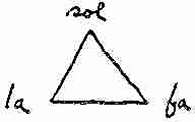 sol
la
fa